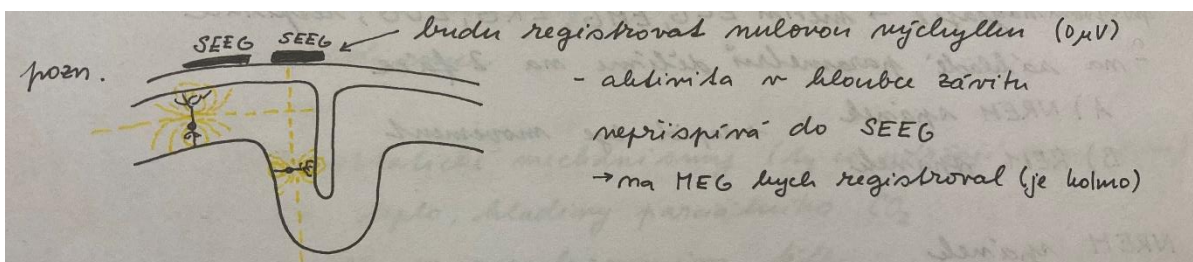 SEEG SEEG budu registrovat nulovou výchylku (0μV)
pozn.
- aktivita v hloubce závitu
nepřispívá do SEEG
→ na MEG bych registroval (je kolmo)